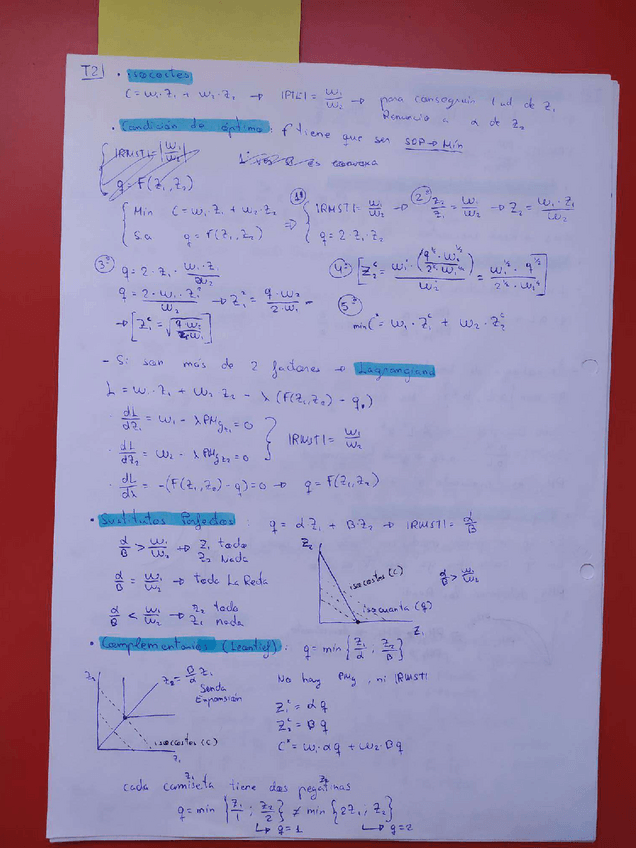 T2 · isocostes
C = w₁·z₁ + w₂·z₂ → |PTC| = w₁/w₂ → para conseguir 1 ud de z₁
Renuncio a α de z₂
· Condición de óptimo: f tiene que ser SOP → Min
|RMST| = |w₁/w₂|
q = F(z₁, z₂)
{ Min C = w₁ z₁ + w₂·z₂
S.a q = F(z₁, z₂) } ⇒ 1º { |RMST| = w₁/w₂ → 2º z₂/z₁ = w₁/w₂ → z₂ = w₁·z₁/w₂
q = 2·z₁·z₂
3º q = 2·z₁·
q = 2·w₁·z₁²/w₂ → z₁² = q·w₂/2·w₁
→ [z₁ᶜ =
4º [z₂ᶜ =
5º
min C* = w₁·z₁ᶜ + w₂·z₂ᶜ
- Si son más de 2 factores → Lagrangiano
L = w₁·z₁ + w₂ z₂ - λ (F(z₁, z₂) - q₀)
· dL/dz₁ = w₁ - λ PMg z₁ = 0
· dL/dz₂ = w₂ - λ PMg z₂ = 0 } |RMST| = w₁/w₂
· dL/dλ = -(F(z₁, z₂) - q) = 0 → q = F(z₁, z₂)
· Sustitutos Perfectos: q = αz₁ + Bz₂ → |RMST| = α/B
α/B > w₁/w₂ → z₁ todo
z₂ nada
α/B = w₁/w₂ → toda La Recta
α/B < w₁/w₂ → z₂ todo
z₁ nada
z₂
isocostes (C)
isocuanta (q)
z₁
α/B > w₁/w₂
· Complementarios (Leontief): q = min {z₁/α ; z₂/B}
z₂
z₂ = B/α z₁
Senda
Expansión
isocostes (C)
z₁
No hay PMg, ni |RMST|
z₁ᶜ = αq
z₂ᶜ = Bq
C* = w₁·αq + w₂·Bq
z₁ z₂
cada camiseta tiene dos pegatinas
q = min {z₁/1 ; z₂/2} ≠ min {2z₁, z₂}
↳ q = 1 ↳ q = 2